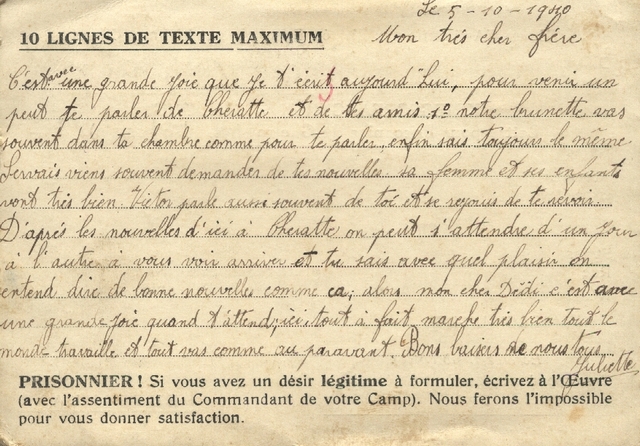 Le 5-10-1940
10 LIGNES DE TEXTE MAXIMUM
Mon très cher frère
C'est avec une grande joie que je t'écrit aujourd'hui, pour venir un
peut te parler de Cheratte et de tes amis 1º notre brunette vas
souvent dans ta chambre comme pour te parler enfin sais toujour le même
Servais viens souvent demander de tes nouvelles sa femme et ses enfants
vont très bien Victor parle aussi souvent de toi et se rejouis de te revoir
D'après les nouvelles d'ici à Cheratte on peut s'attendre d'un jour
à l'autre à vous voir arriver et tu sais avec quel plaisir on
entend dire de bonne nouvelles comme ca, alors mon cher Dédi c'est avec
une grande joie quand t'attend, ici tout à fait marche très bien tout le
monde travaille et tout vas comme au paravant. Bons baisers de nous tous
Juliette
PRISONNIER ! Si vous avez un désir légitime à formuler, écrivez à l'Œuvre
(avec l'assentiment du Commandant de votre Camp). Nous ferons l'impossible
pour vous donner satisfaction.